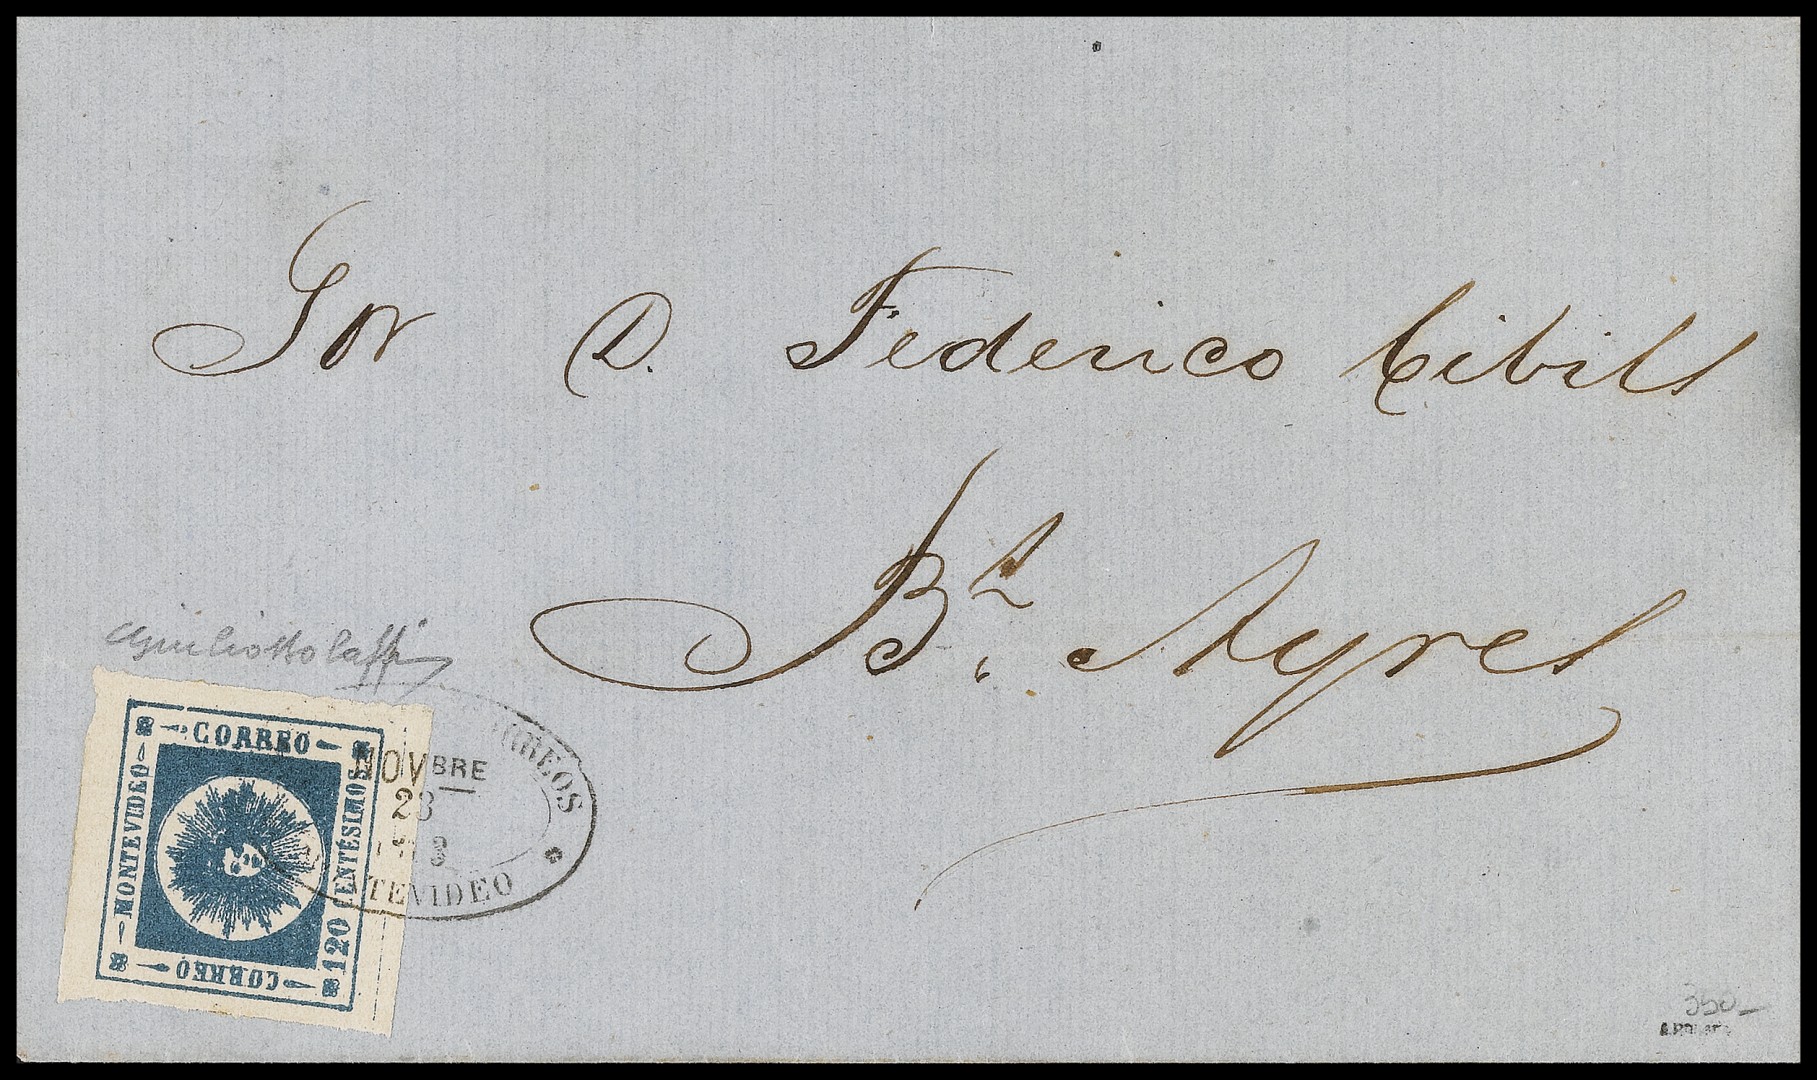 Sor D. Federico Cibils
Bs. Ayres
Giulio Bolaffi
CORREO
MONTEVIDEO
120 CENTÉSIMOS
CORREO
CORREOS
NOVBRE
23
MONTEVIDEO
350-